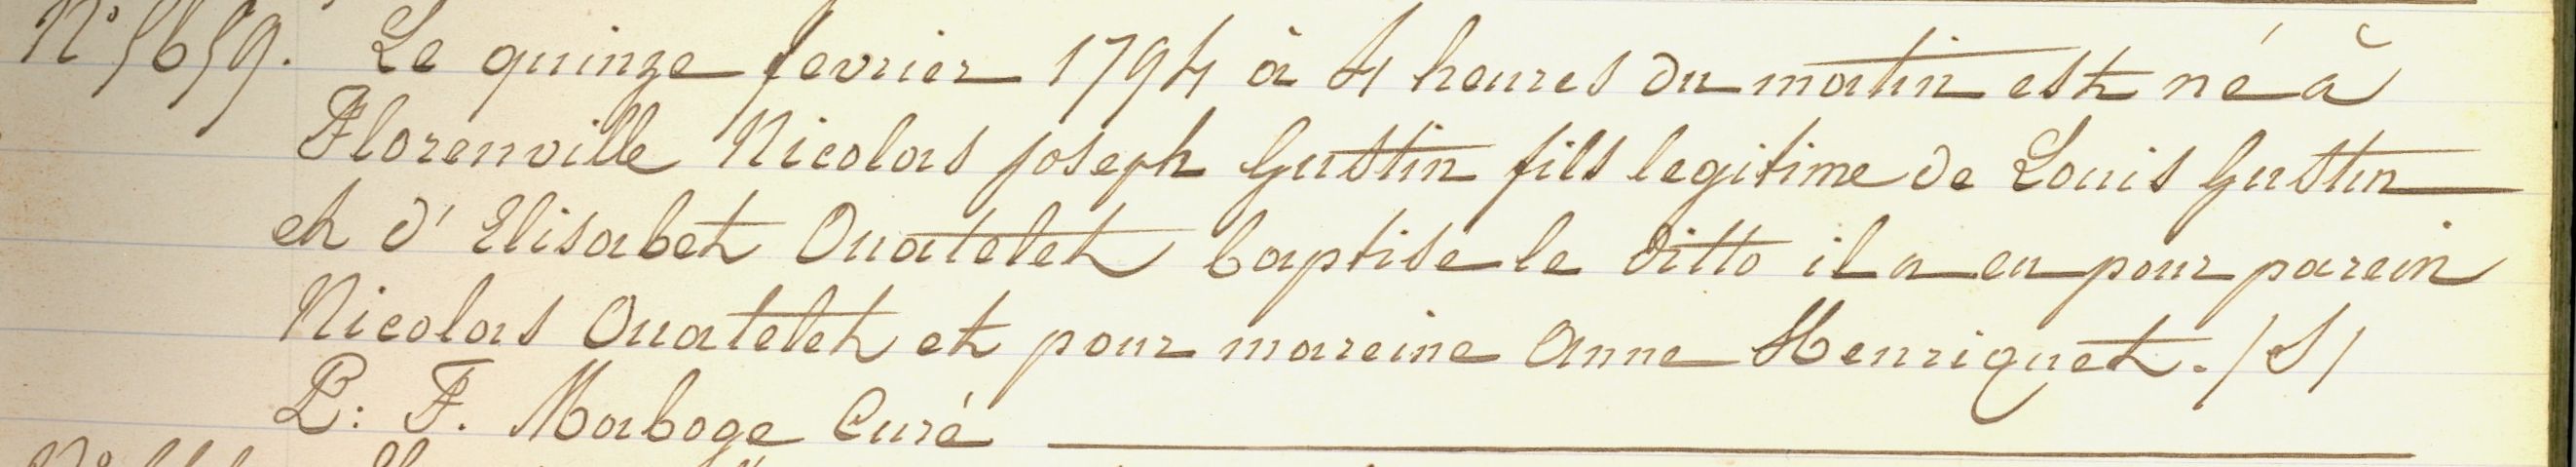 N° 5659. Le quinze fevrier 1794 à 4 heures du matin est né à
Florenville Nicolas joseph Gustin fils legitime de Louis Gustin
et d' Elisabet Ouatelet baptise le ditto il a eu pour parein
Nicolas Ouatelet et pour mareine Anne Henriquet. /S/
P: F. Maboge Curé